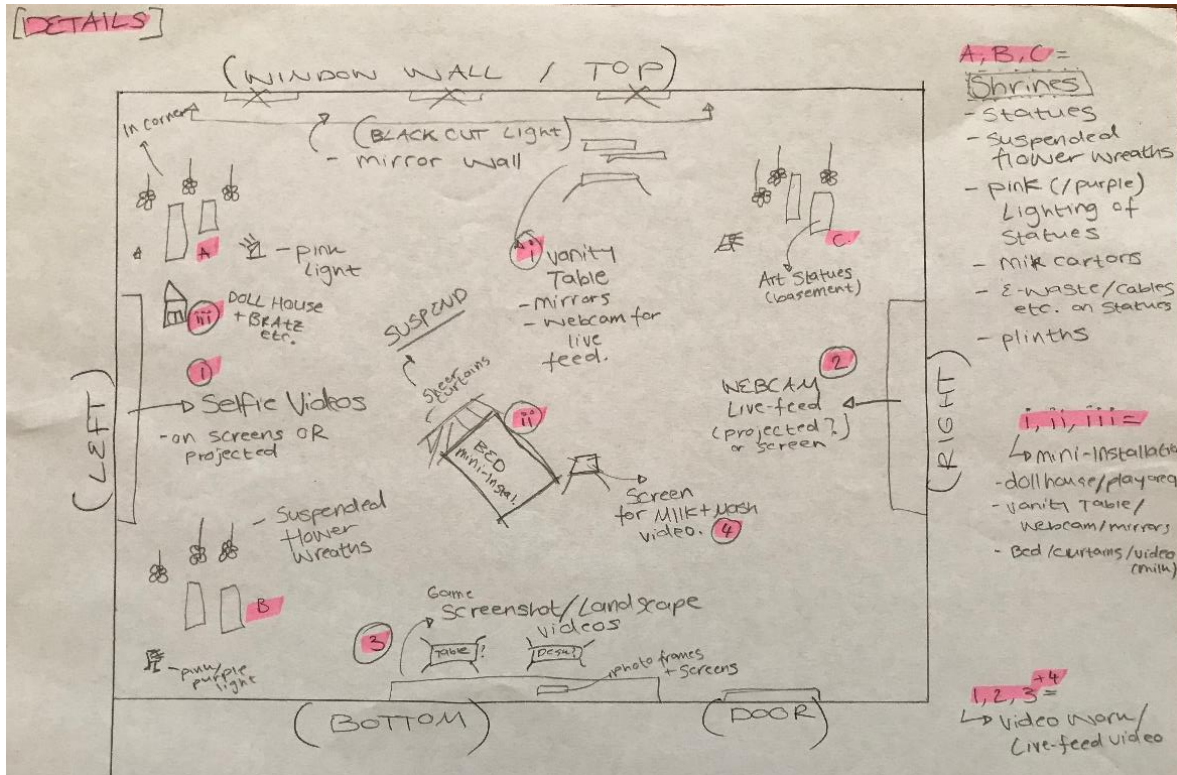 [DETAILS]
(WINDOW WALL / TOP)
In corner
(BLACK OUT Light)
- mirror wall
A
- pink
Light
iii
DOLL HOUSE
+ BRATZ
etc.
1
Selfie Videos
- on screens OR
projected
(LEFT)
SUSPEND
Sheer
curtains
i
Vanity
Table
- mirrors
- webcam for
live
feed.
C
Art Statues
(basement)
2
WEBCAM
Live-feed
(projected?)
or screen
(RIGHT)
ii
BED
mini-instal.
Screen
for Milk + Mash
video. 4
- Suspended
flower
Wreaths
B
- pink/purple
light
3
Game
Screenshot/Landscape
videos
Table?
Desk?
photo frames
+ screens
(BOTTOM)
(DOOR)
A, B, C =
Shrines
- Statues
- Suspended
flower wreaths
- pink (/purple)
Lighting of
Statues
- Milk cartons
- E-waste/cables
etc. on statues
- plinths
i, ii, iii =
mini-Installatio
- doll house/play area
- Vanity Table/
webcam/mirrors
- Bed/curtains/video
(milk)
1, 2, 3 +4 =
Video work/
Live-feed video